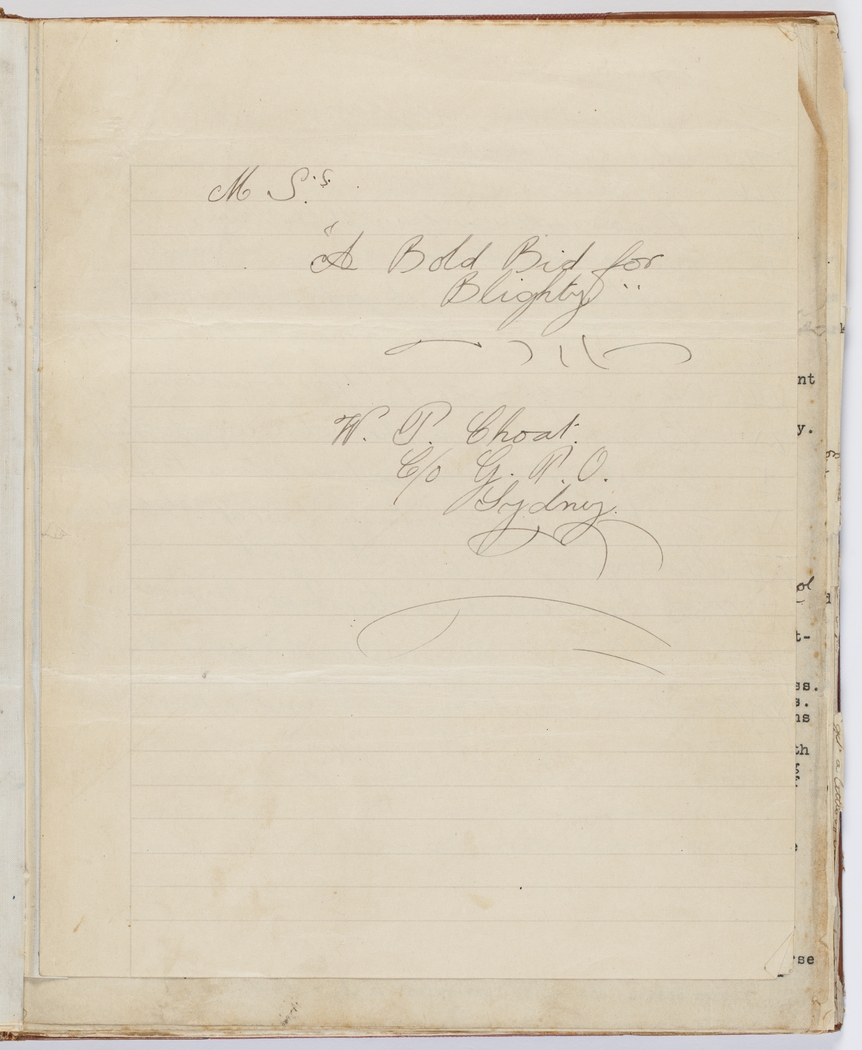 M S.s.
"A Bold Bid for
Blighty"
W. P. Choat.
C/o G. P. O.
Sydney.
nt
y.
ol
t-
ss.
s.
ns
th
rse